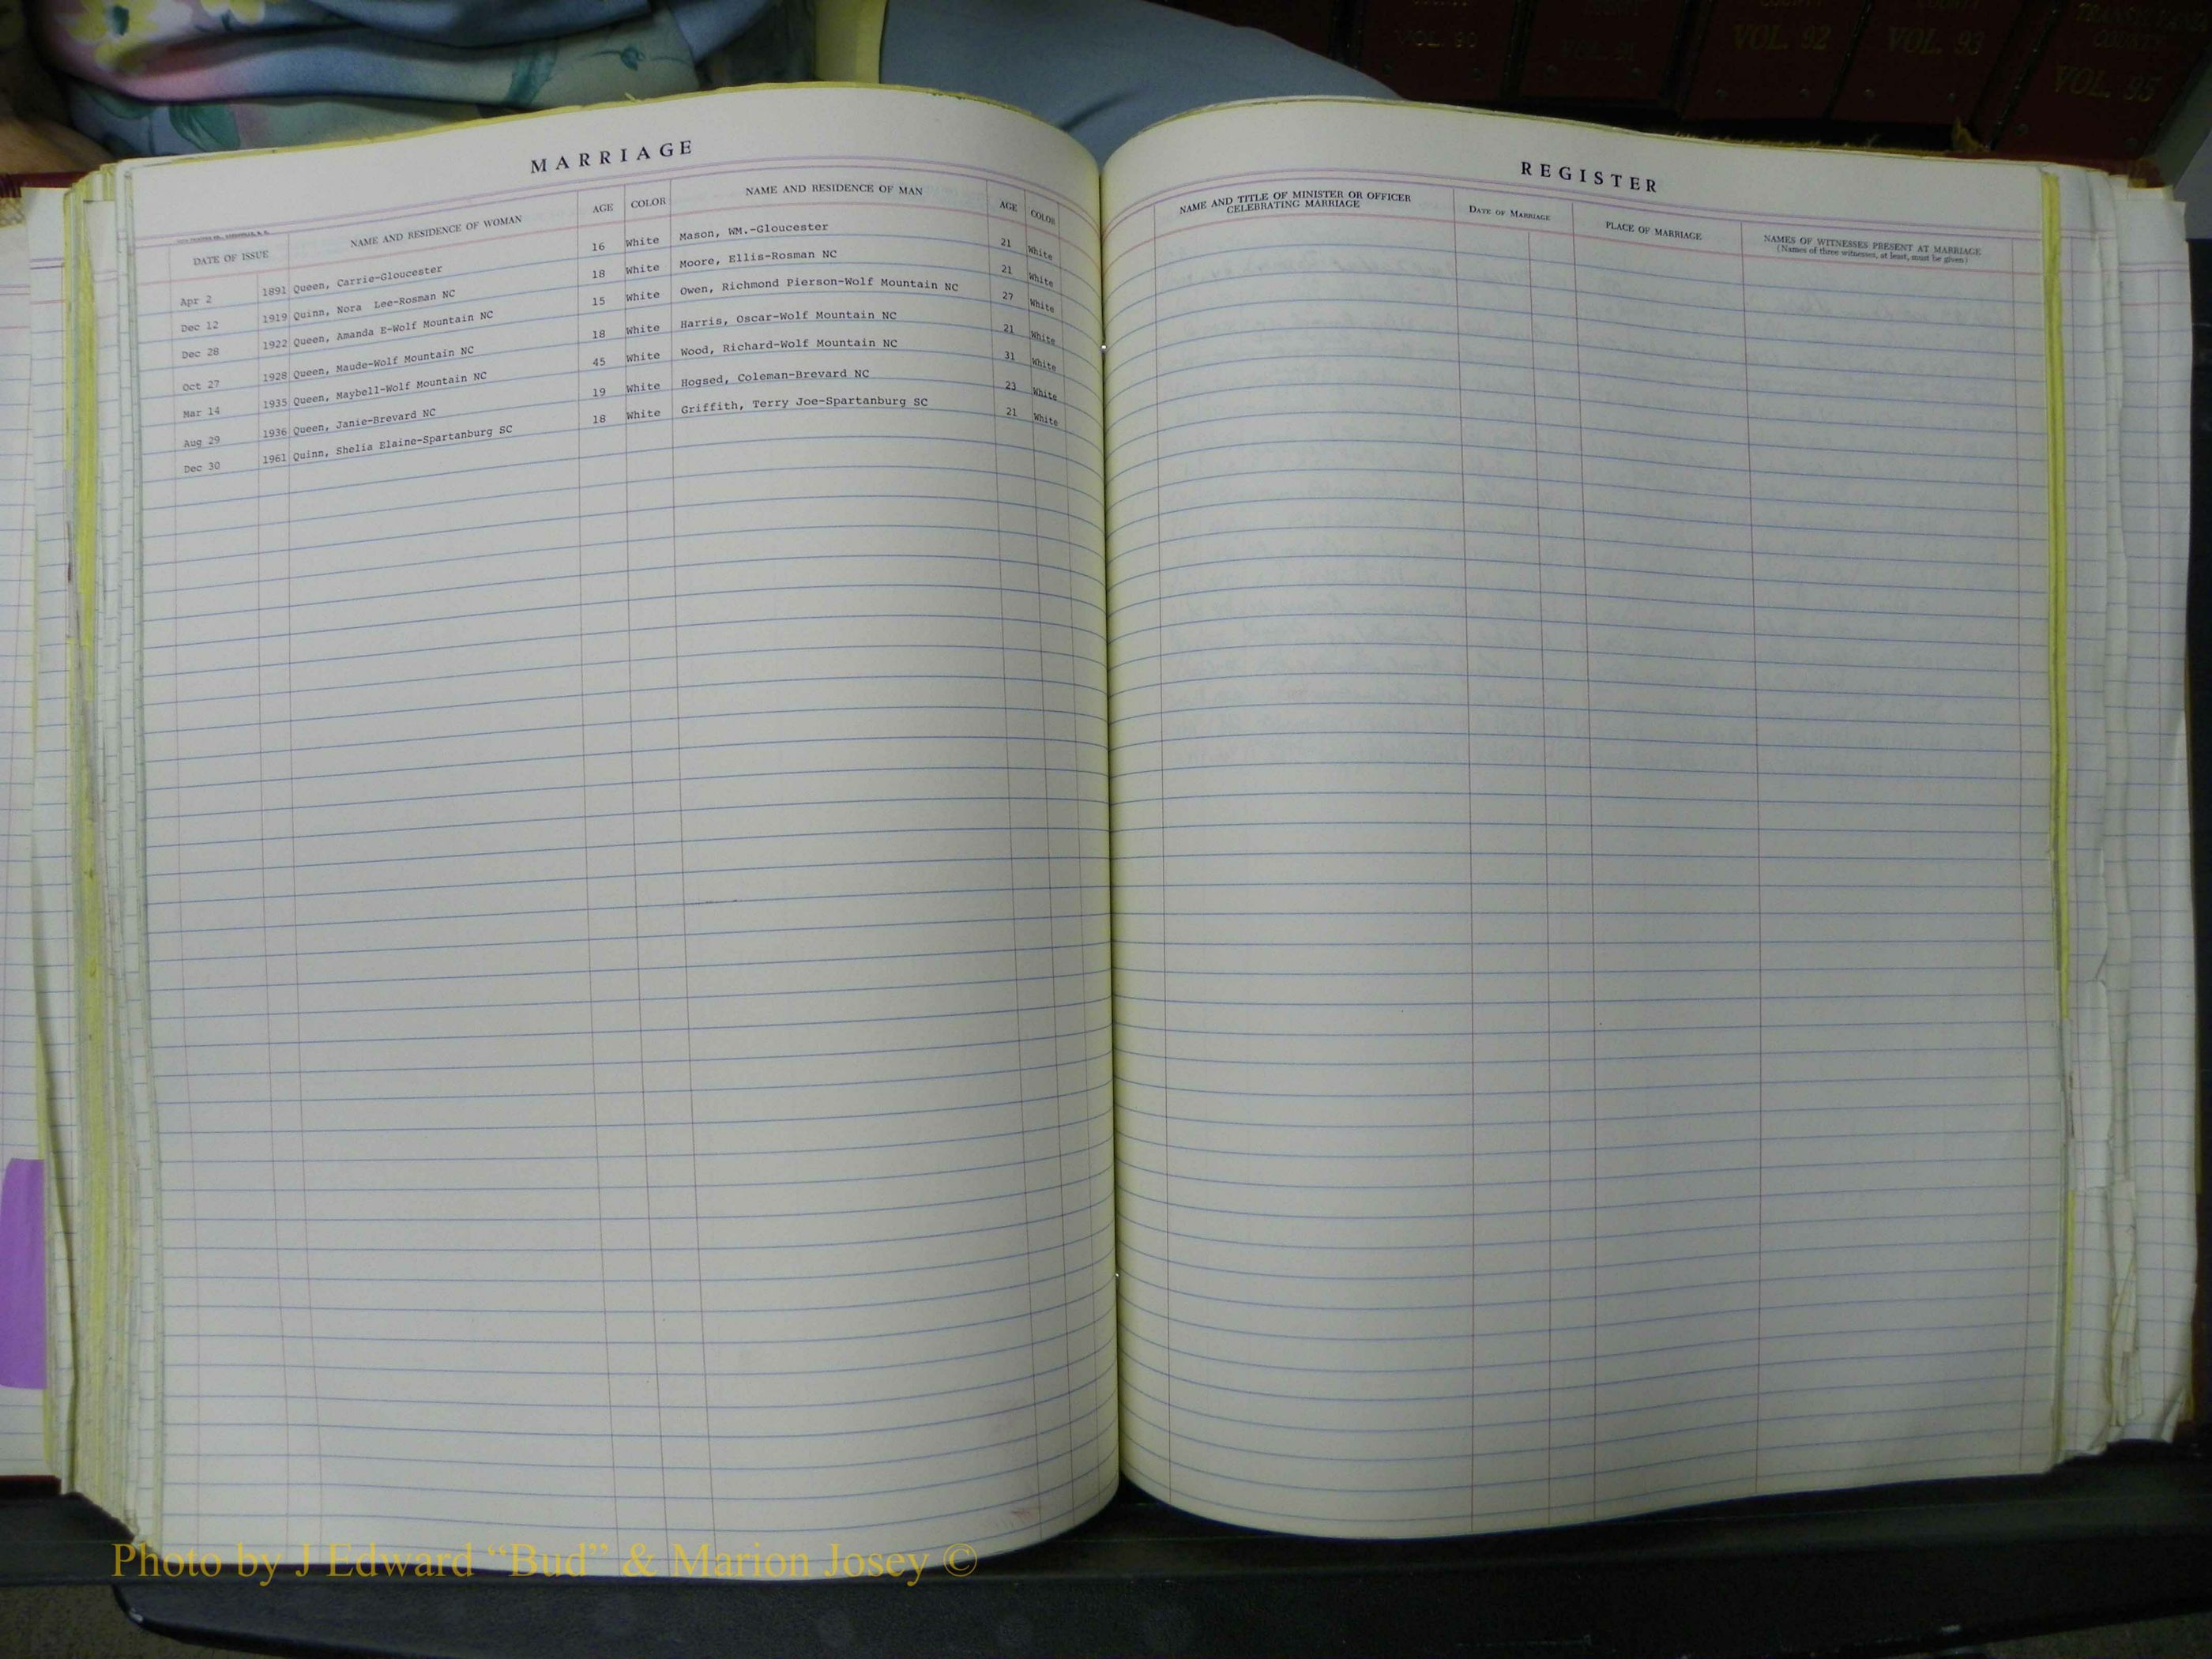 COUNTY COUNTY COUNTY COUNTY TRANSYLVANIA COUNTY
VOL. 90 VOL. 91 VOL. 92 VOL. 93 VOL. 95
MARRIAGE
DATE OF ISSUE NAME AND RESIDENCE OF WOMAN AGE COLOR NAME AND RESIDENCE OF MAN AGE COLOR
Apr 2 1891 Queen, Carrie-Gloucester 16 White Mason, WM.-Gloucester 21 White
Dec 12 1919 Quinn, Nora Lee-Rosman NC 18 White Moore, Ellis-Rosman NC 21 White
Dec 28 1922 Queen, Amanda E-Wolf Mountain NC 15 White Owen, Richmond Pierson-Wolf Mountain NC 27 White
Oct 27 1928 Queen, Maude-Wolf Mountain NC 18 White Harris, Oscar-Wolf Mountain NC 21 White
Mar 14 1935 Queen, Maybell-Wolf Mountain NC 45 White Wood, Richard-Wolf Mountain NC 31 White
Aug 29 1936 Queen, Janie-Brevard NC 19 White Hogsed, Coleman-Brevard NC 23 White
Dec 30 1961 Quinn, Shelia Elaine-Spartanburg SC 18 White Griffith, Terry Joe-Spartanburg SC 21 White
REGISTER
NAME AND TITLE OF MINISTER OR OFFICER CELEBRATING MARRIAGE DATE OF MARRIAGE PLACE OF MARRIAGE NAMES OF WITNESSES PRESENT AT MARRIAGE
(Names of three witnesses, at least, must be given)
Photo by J Edward “Bud” & Marion Josey ©